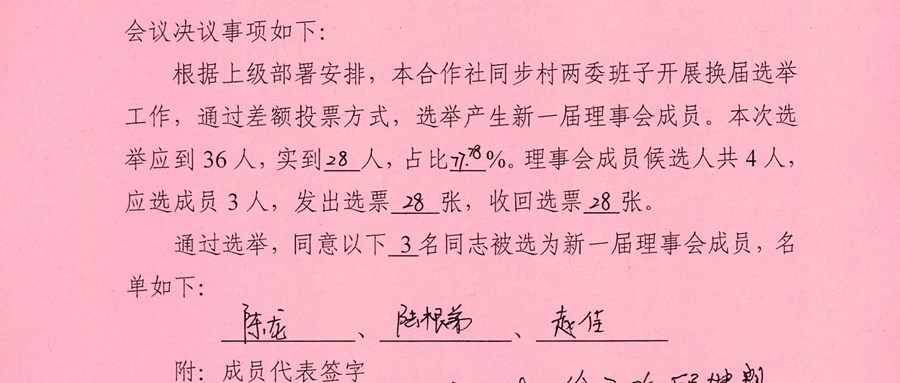 会议决议事项如下：
根据上级部署安排，本合作社同步村两委班子开展换届选举
工作，通过差额投票方式，选举产生新一届理事会成员。本次选
举应到 36 人，实到 28 人，占比 77.78 %。理事会成员候选人共 4 人，
应选成员 3 人，发出选票 28 张，收回选票 28 张。
通过选举，同意以下 3 名同志被选为新一届理事会成员，名
单如下：
陈龙 、 陆根弟 、 赵佳
附：成员代表签字